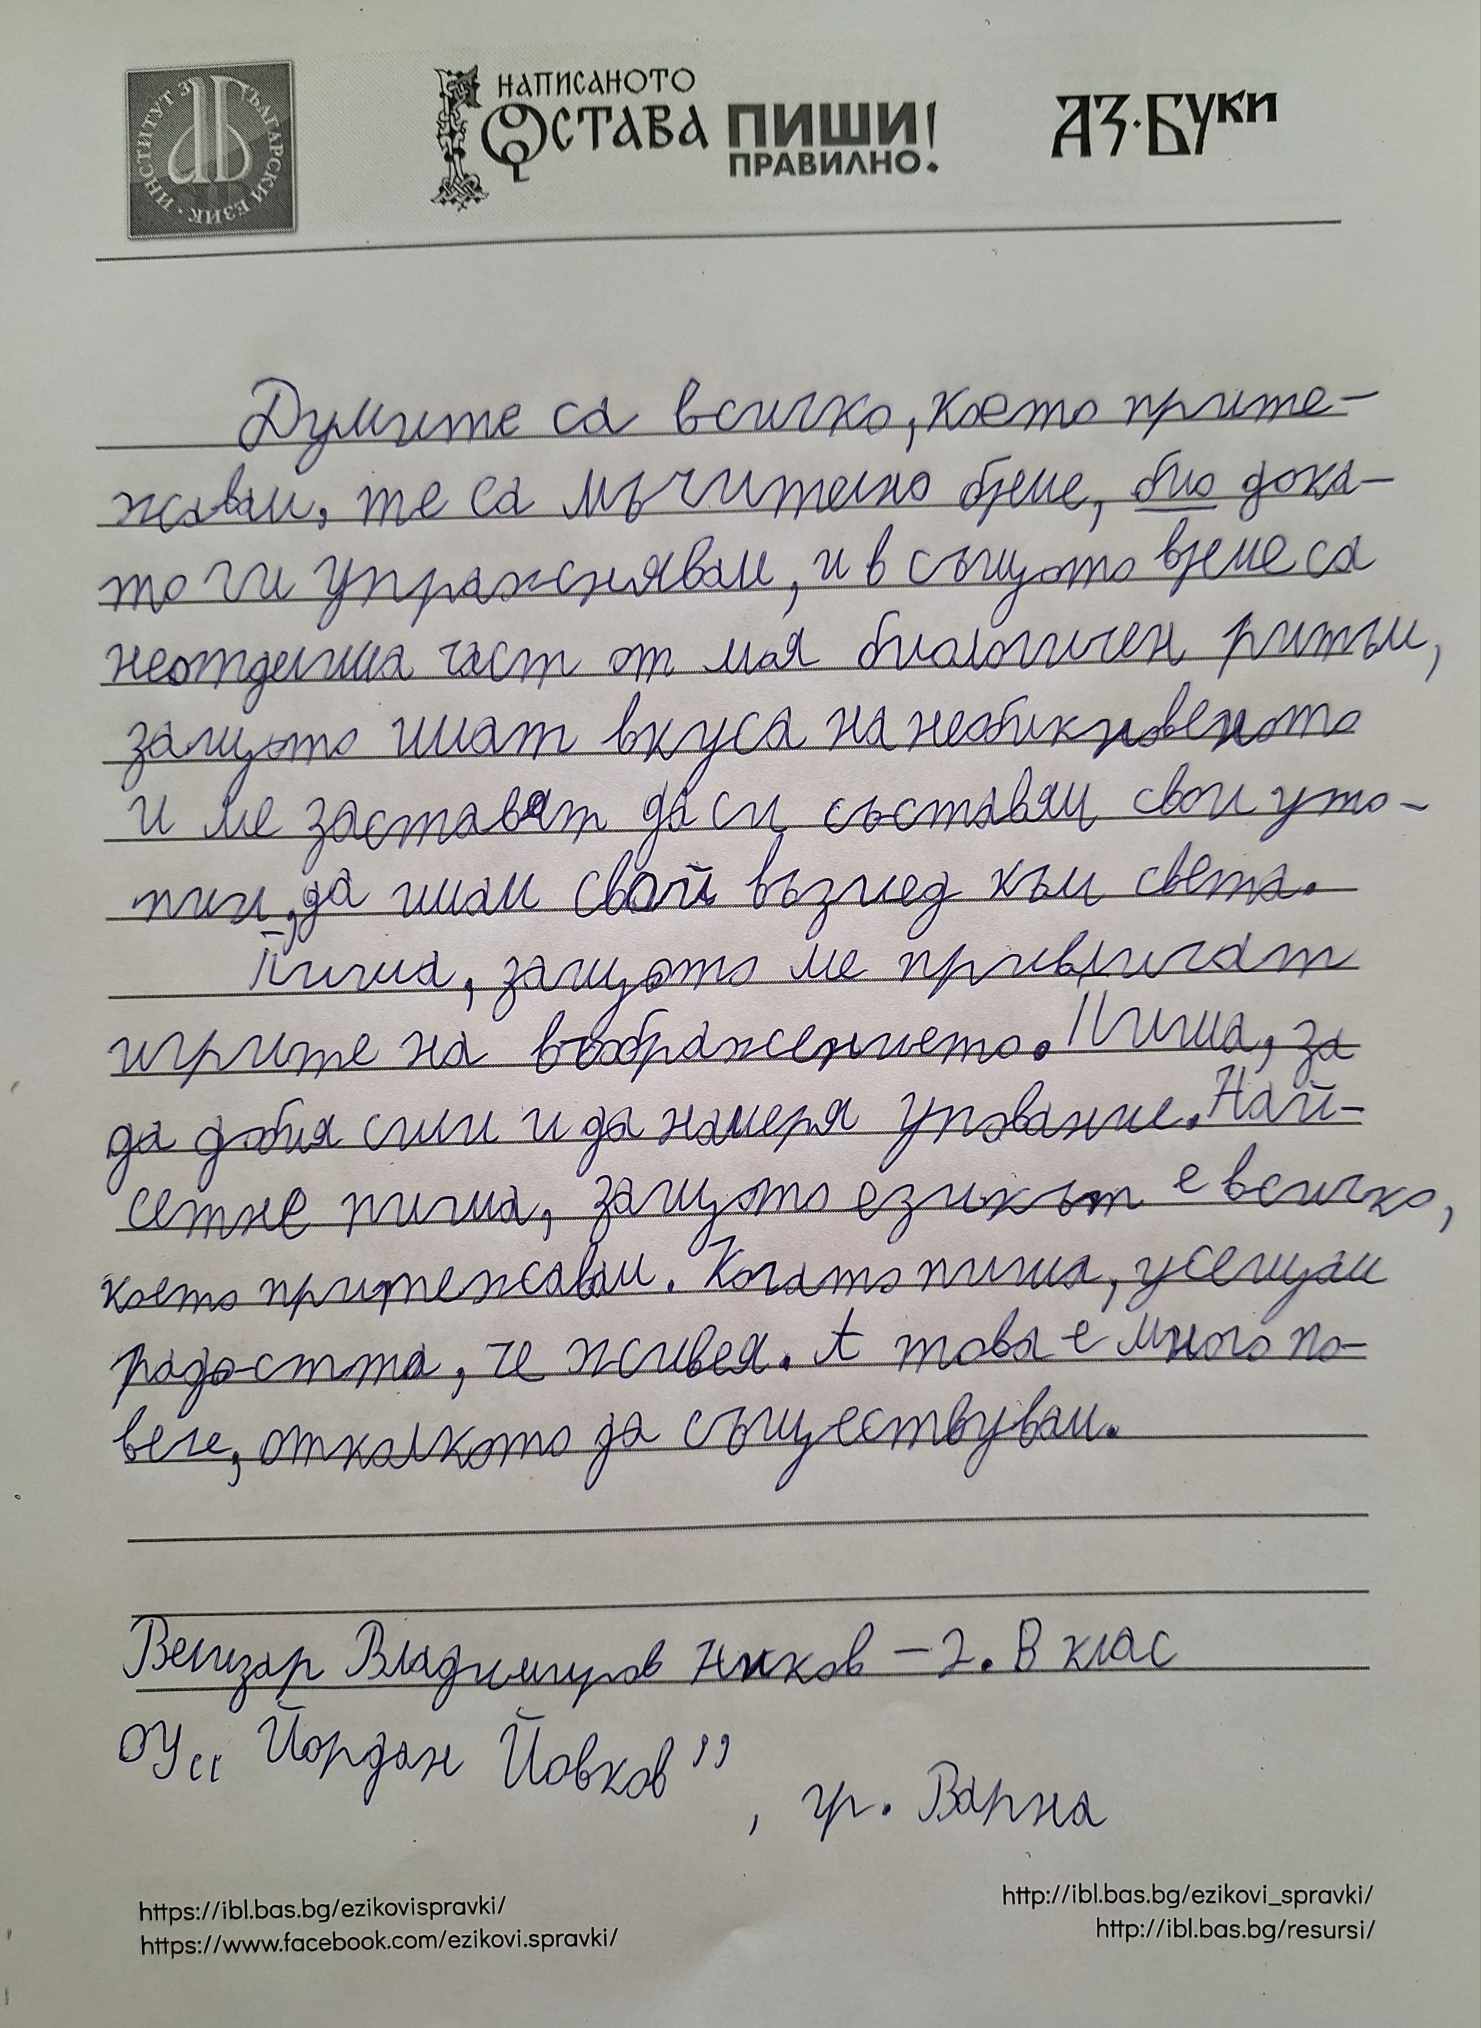 ИНСТИТУТ ЗА БЪЛГАРСКИ ЕЗИК
НАПИСАНОТО
ОСТАВА ПИШИ!
ПРАВИЛНО.
АЗ·БУКИ
Думите са всичко, което прите-
жавам, те са мъчително бреме, био дока-
то ги упражнявам, и в същото време са
неотделима част от моя биологичен ритъм,
защото имат вкуса на необикновеното
и ме заставят да си съставям свои уто-
пии, да имам свой възглед към света.
Пиша, защото ме привличат
игрите на въображението. Пиша, за
да добия сили и да намеря упование. Най-
сетне пиша, защото езикът е всичко,
което притежавам. Когато пиша, усещам
радостта, че живея. А това е много по-
вече, отколкото да съществувам.
Велизар Владимиров Ников - 2. В клас
ОУ „ Йордан Йовков" , гр. Варна
https://ibl.bas.bg/ezikovispravki/
https://www.facebook.com/ezikovi.spravki/
http://ibl.bas.bg/ezikovi_spravki/
http://ibl.bas.bg/resursi/